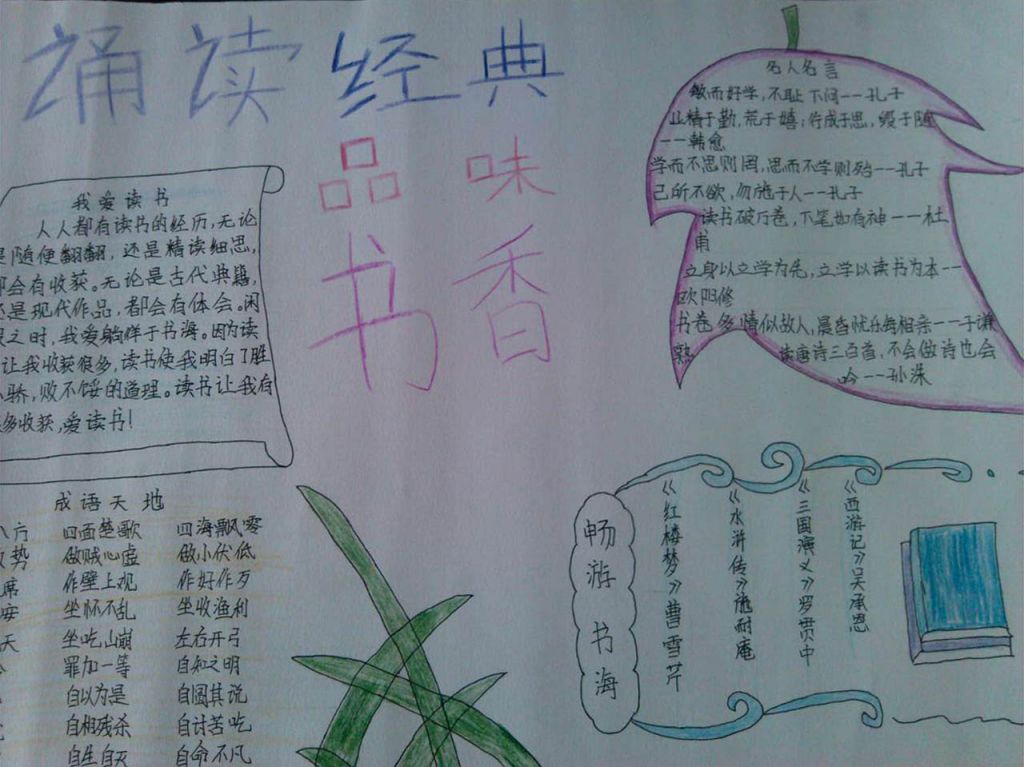 诵读经典
品味
书香
我爱读书
人人都有读书的经历,无论
是随便翻翻,还是精读细思,
都会有收获。无论是古代典籍,
还是现代作品,都会有体会。闲
暇之时,我爱躺徉于书海。因为读
让我收获很多,读书使我明白了胜
不骄,败不馁的道理。读书让我有
多收获,爱读书!
成语天地
八方 四面楚歌 四海飘零
势 做贼心虚 做小伏低
席 作壁上观 作好作歹
安 坐怀不乱 坐收渔利
天 坐吃山崩 左右开弓
罪加一等 自知之明
自以为是 自圆其说
自相残杀 自讨苦吃
自生自灭 自命不凡
名人名言
敏而好学,不耻下问--孔子
业精于勤,荒于嬉;行成于思,毁于随
--韩愈
学而不思则罔,思而不学则殆--孔子
己所不欲,勿施于人--孔子
读书破万卷,下笔如有神--杜
甫
立身以立学为先,立学以读书为本--
欧阳修
书卷多情似故人,晨昏忧乐每相亲--于谦
熟读唐诗三百首,不会做诗也会
吟--孙洙
畅游书海
《红楼梦》曹雪芹
《水浒传》施耐庵
《三国演义》罗贯中
《西游记》吴承恩